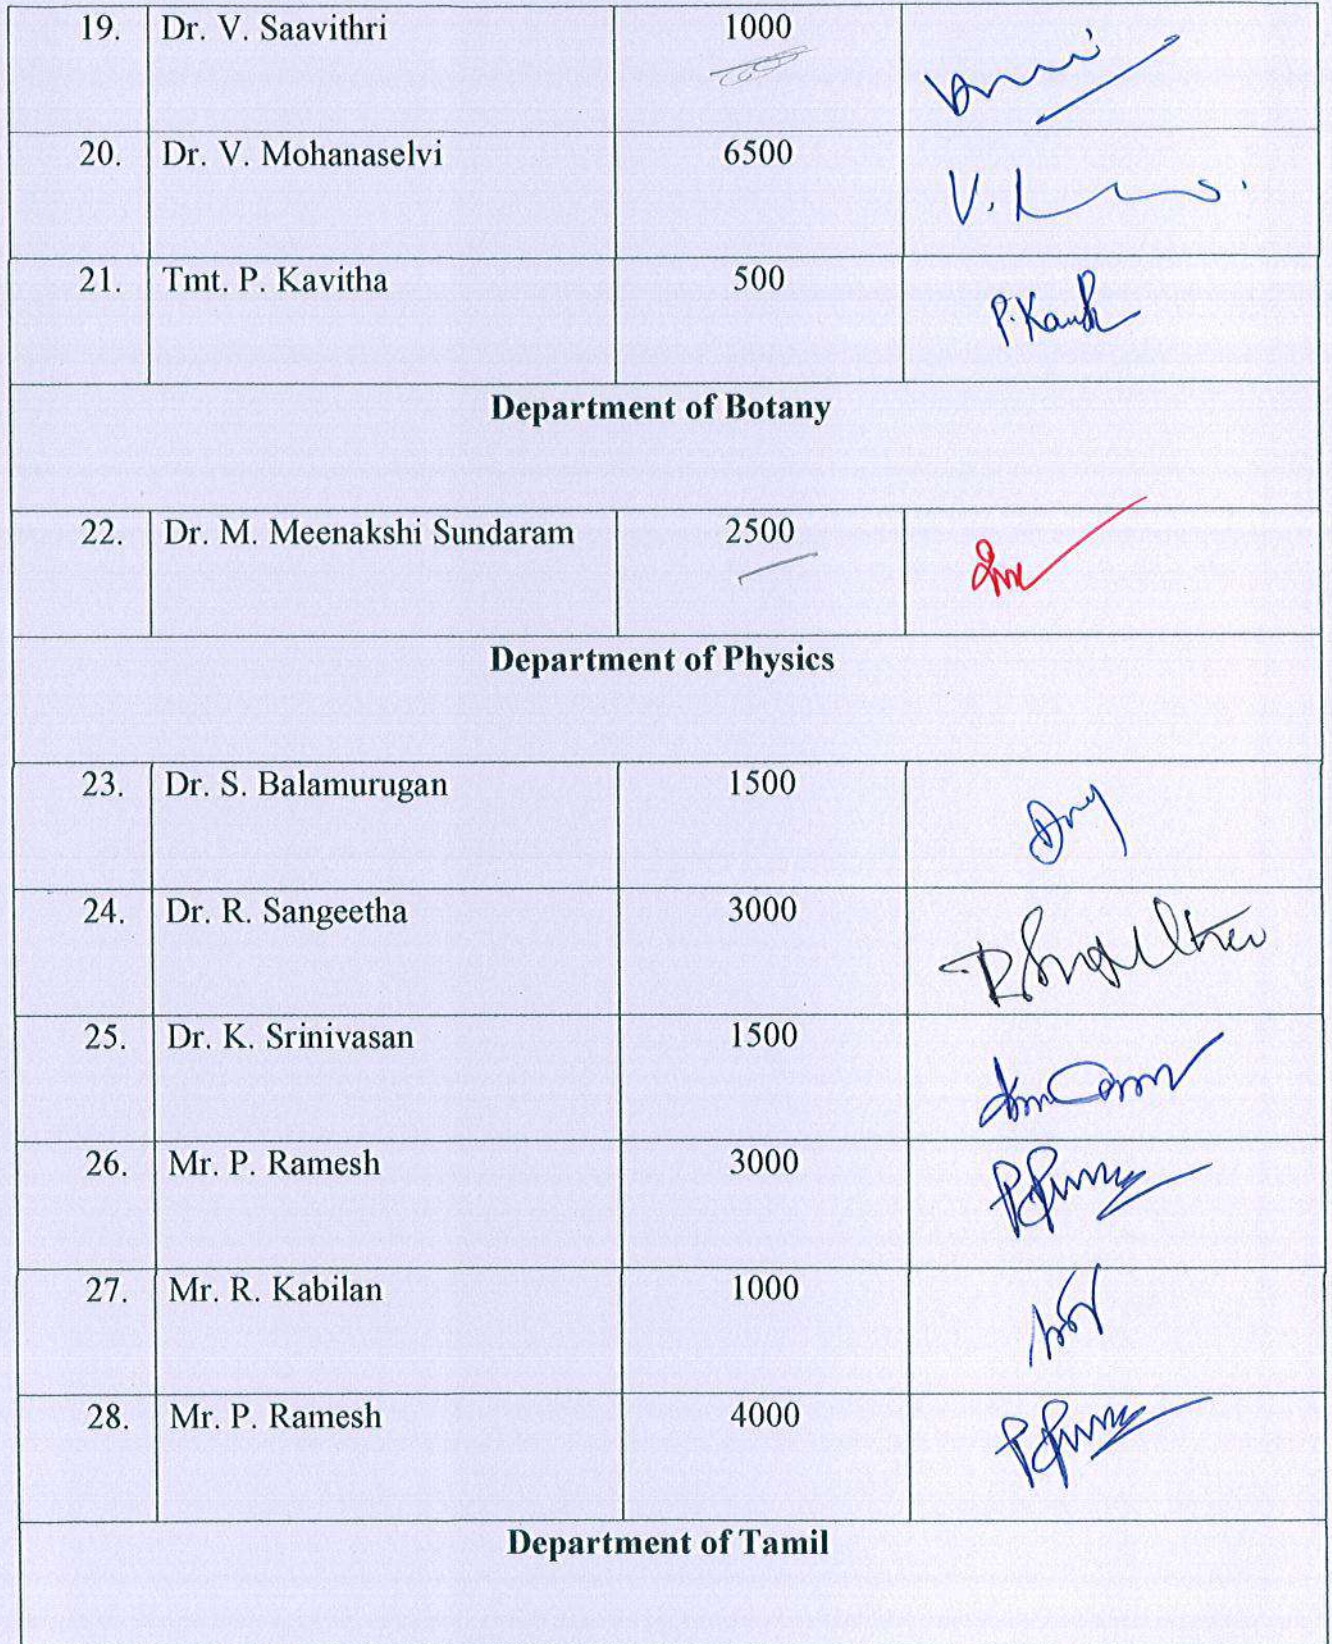 19. Dr. V. Saavithri 1000
20. Dr. V. Mohanaselvi 6500
21. Tmt. P. Kavitha 500
P. Kavi
Department of Botany
22. Dr. M. Meenakshi Sundaram 2500
Department of Physics
23. Dr. S. Balamurugan 1500
24. Dr. R. Sangeetha 3000
25. Dr. K. Srinivasan 1500
26. Mr. P. Ramesh 3000
27. Mr. R. Kabilan 1000
28. Mr. P. Ramesh 4000
Department of Tamil